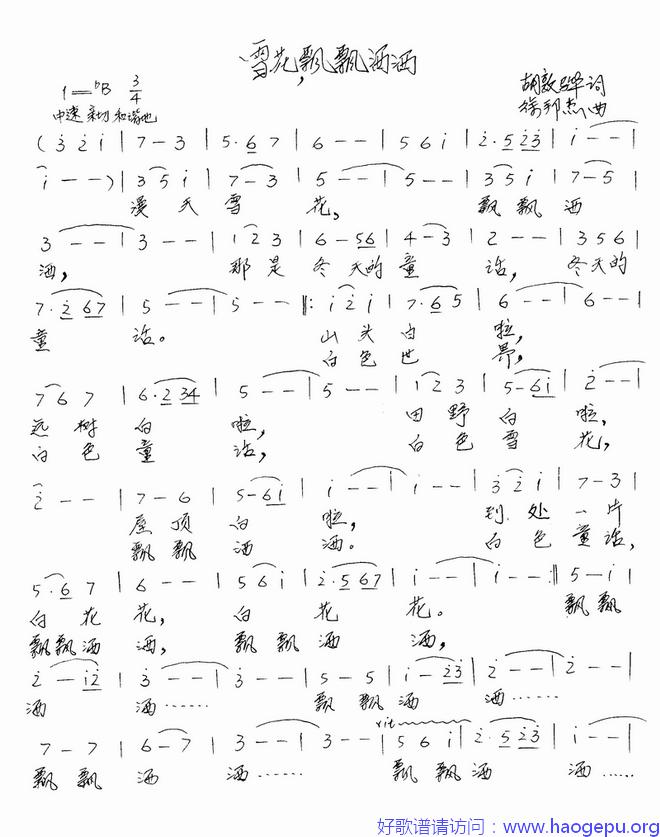 雪花,飘飘洒洒
1=bB 3/4
胡敦骅词
中速 亲切 和谐地
徐邦杰曲
( 3 2 i | 7 - 3 | 5·6 7 | 6 - - | 5 6 i | 2·5 2 3 | i - - |
i - - ) | 3 5 i | 7 - 3 | 5 - - | 5 - - | 3 5 i | 7 - 5 |
漫天雪 花, 飘飘洒
3 - - | 3 - - | 1 2 3 | 6 - 5 6 | 4 - 3 | 2 - - | 3 5 6 |
洒, 那是冬天的童 话, 冬天的
7·2 6 7 | 5 - - | 5 - - ‖: i 2 i | 7·6 5 | 6 - - | 6 - - |
童 话。 山头白 啦,
白色世 界,
7 6 7 | 6·2 3 4 | 5 - - | 5 - - | i 2 3 | 5 - 6 i | 2 - - |
远树白 啦, 田野白 啦,
白色童 话, 白色雪 花,
2 - - | 7 - 6 | 5 - 6 i | i - - | i - - | 3 2 i | 7 - 3 |
屋顶白 啦, 到处一片
飘飘洒 洒。 白色童话,
5·6 7 | 6 - - | 5 6 i | 2·5 6 7 | i - - | i - - :‖ 5 - i |
白花花, 白花花。 飘飘
飘飘洒 洒, 飘飘洒 洒,
2 - i 2 | 3 - - | 3 - - | 5 - 5 | i - 2 3 | 2 - - | 2 - - |
洒 洒…… 飘飘洒 洒……
rit
7 - 7 | 6 - 7 | 3 - - | 3 - - | 5 6 i | 2·5 2 3 | i - - |
飘飘洒 洒…… 飘飘洒 洒……
好歌谱请访问：www.haogepu.org